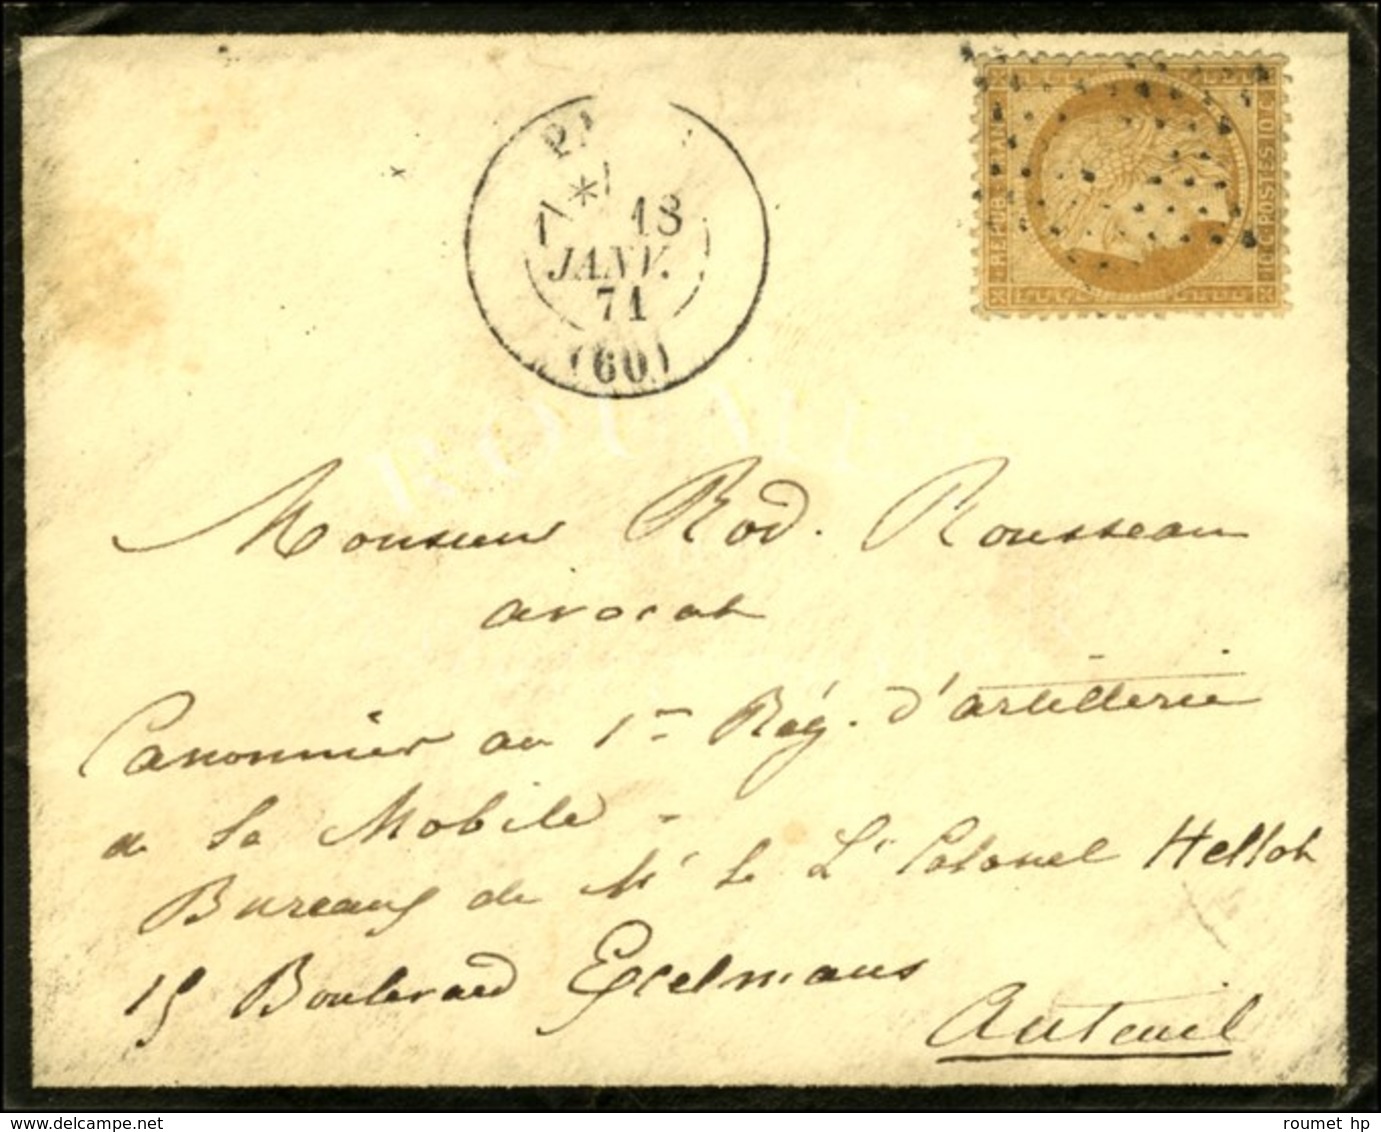 PA
18
JANV.
71
(60)
REPUB. FRANC.
10 C. POSTES 10 C.
Monsieur Rod. Rousseau
avocat
Canonnier au 1er Rég. d'artillerie
de la Mobile -
Bureaux de Mr le Lt Colonel Hellot
15 Boulevard Excelmans
Auteuil
roumet hp